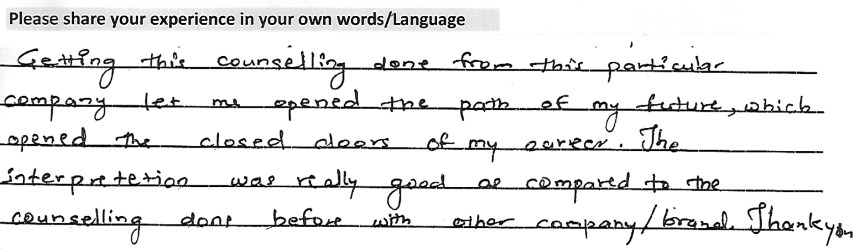 Please share your experience in your own words/Language
Getting this counselling done from this particular
company let me opened the path of my future, which
opened the closed doors of my career. The
interpretetion was really good as compared to the
counselling done before with other company/brand. Thankyou